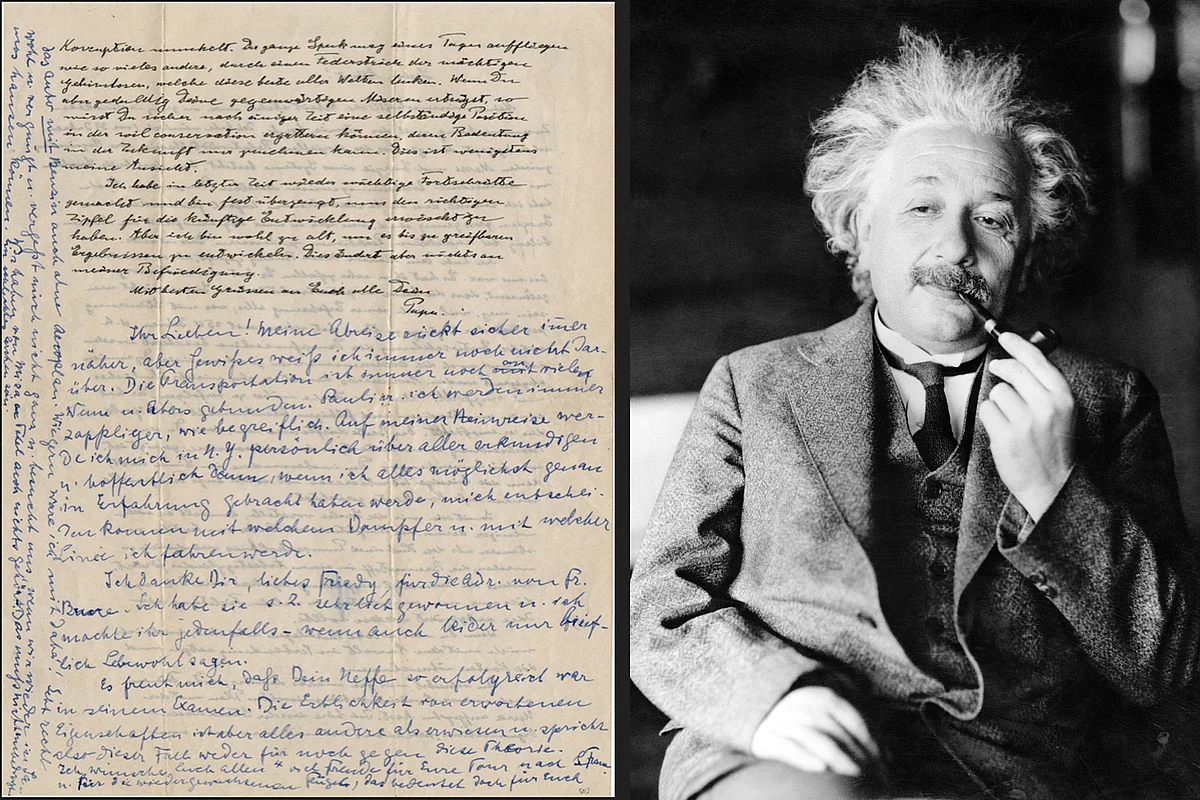 Korruption munkelt. Die ganze Spuk mag eines Tages auffliegen
wie so vieles andere, durch einen Federstrich der mächtigen
Gehirnlosen, welche diese beste aller Welten lenken. Wenn Du
aber geduldig Deine gegenwärtigen Miseren erträgst, so
wirst Du sicher nach einiger Zeit eine selbständige Position
in der soil conservation ergattern können, deren Bedeutung
in der Zukunft nur zunehmen kann. Dies ist wenigstens
meine Ansicht.
Ich habe in letzter Zeit wieder mächtige Fortschritte
gemacht und bin fest überzeugt, nun den richtigen
Zipfel für die künftige Entwicklung erwischt zu
haben. Aber ich bin wohl zu alt, um es bis zu greifbaren
Ergebnissen zu entwickeln. Dies ändert aber nichts an
meiner Befriedigung.
Mit besten Grüssen an Euch alle Dein
Papa.
Ihr Lieben! Meine Abreise rückt sicher imer
näher, aber Gewißes weiß ich immer noch nicht dar-
über. Die Transportation ist immer noch mit vielen
Wenn u. Abers gebunden. u. ich werden immer
zappliger, wie begreiflich. Auf meiner Heimreise wer-
de ich mich in N. Y. persönlich über aller erkundigen
u. hoffentlich dann, wenn ich alles möglichst genau
in Erfahrung gebracht haben werde, mich entschei-
den können mit welchem Dampfer u. mit welcher
Linie ich fahren werde.
Ich danke Dir, liebes Friedy, für die Adr. von Fr.
Ich habe sie s. Z. sehr lieb gewonnen u. ich
möchte ihr jedenfalls – wenn auch leider nur brief-
lich Lebewohl sagen.
Es freut mich, daß Dein Neffe so erfolgreich war
in seinem Examen. Die Erblichkeit von erworbenen
Eigenschaften ist aber alles andere als erwiesen u. spricht
also dieser Fall weder für noch gegen diese Theorie.
Ich wünsche Euch allen viel Freude für Eure Tour nach S. Fran
u. für die wiedergewachsenen Flügel, das bedeutet doch für Euch
das Auto mit Benzin auch ohne Aeroplan. Wie gern wäre ich mit dabei! Lebt recht
wohl u. vergnügt u. vergeßt mich nicht ganz u. besucht uns, wenn wir wieder in